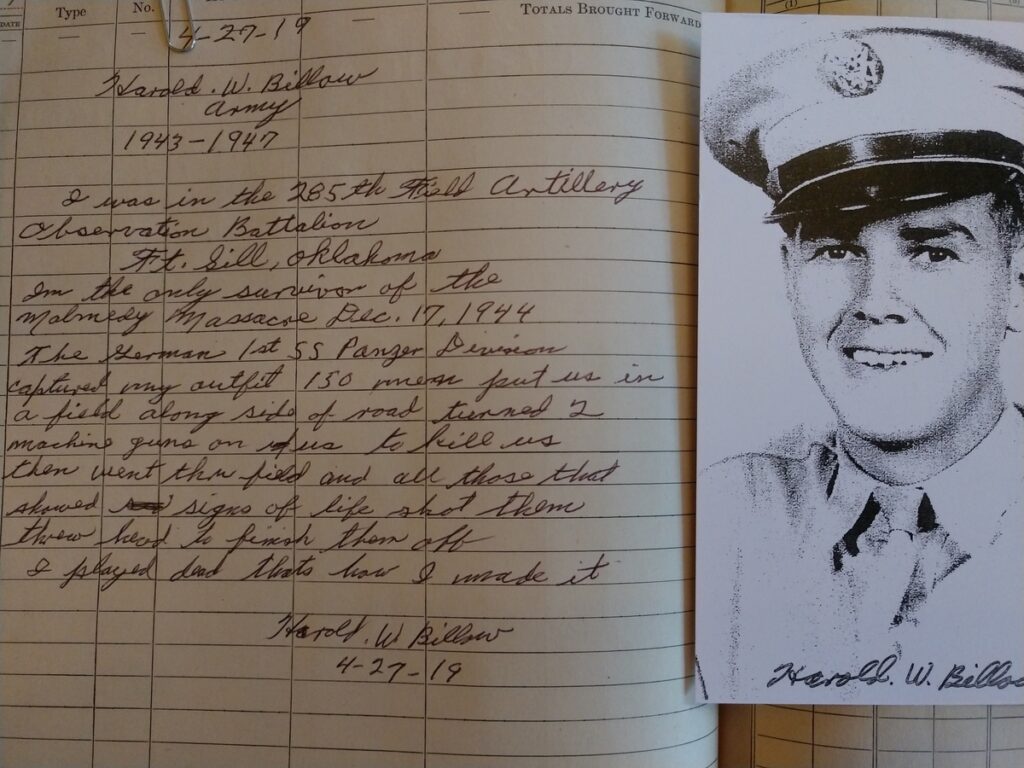 DATE
Type
No.
TOTALS BROUGHT FORWARD
(1)
4-27-19
Harold. W. Billow
Army
1943-1947
I was in the 285th Field Artillery
Observation Battalion
Ft. Sill, Oklahoma
Im the only survivor of the
Malmedy Massacre Dec. 17, 1944
The German 1st SS Panzer Division
captured my outfit 150 men put us in
a field along side of road turned 2
machine guns on us to kill us
then went thru field and all those that
showed signs of life shot them
threw head to finish them off
I played dead thats how I made it
Harold. W Billow
4-27-19
Harold. W. Billow